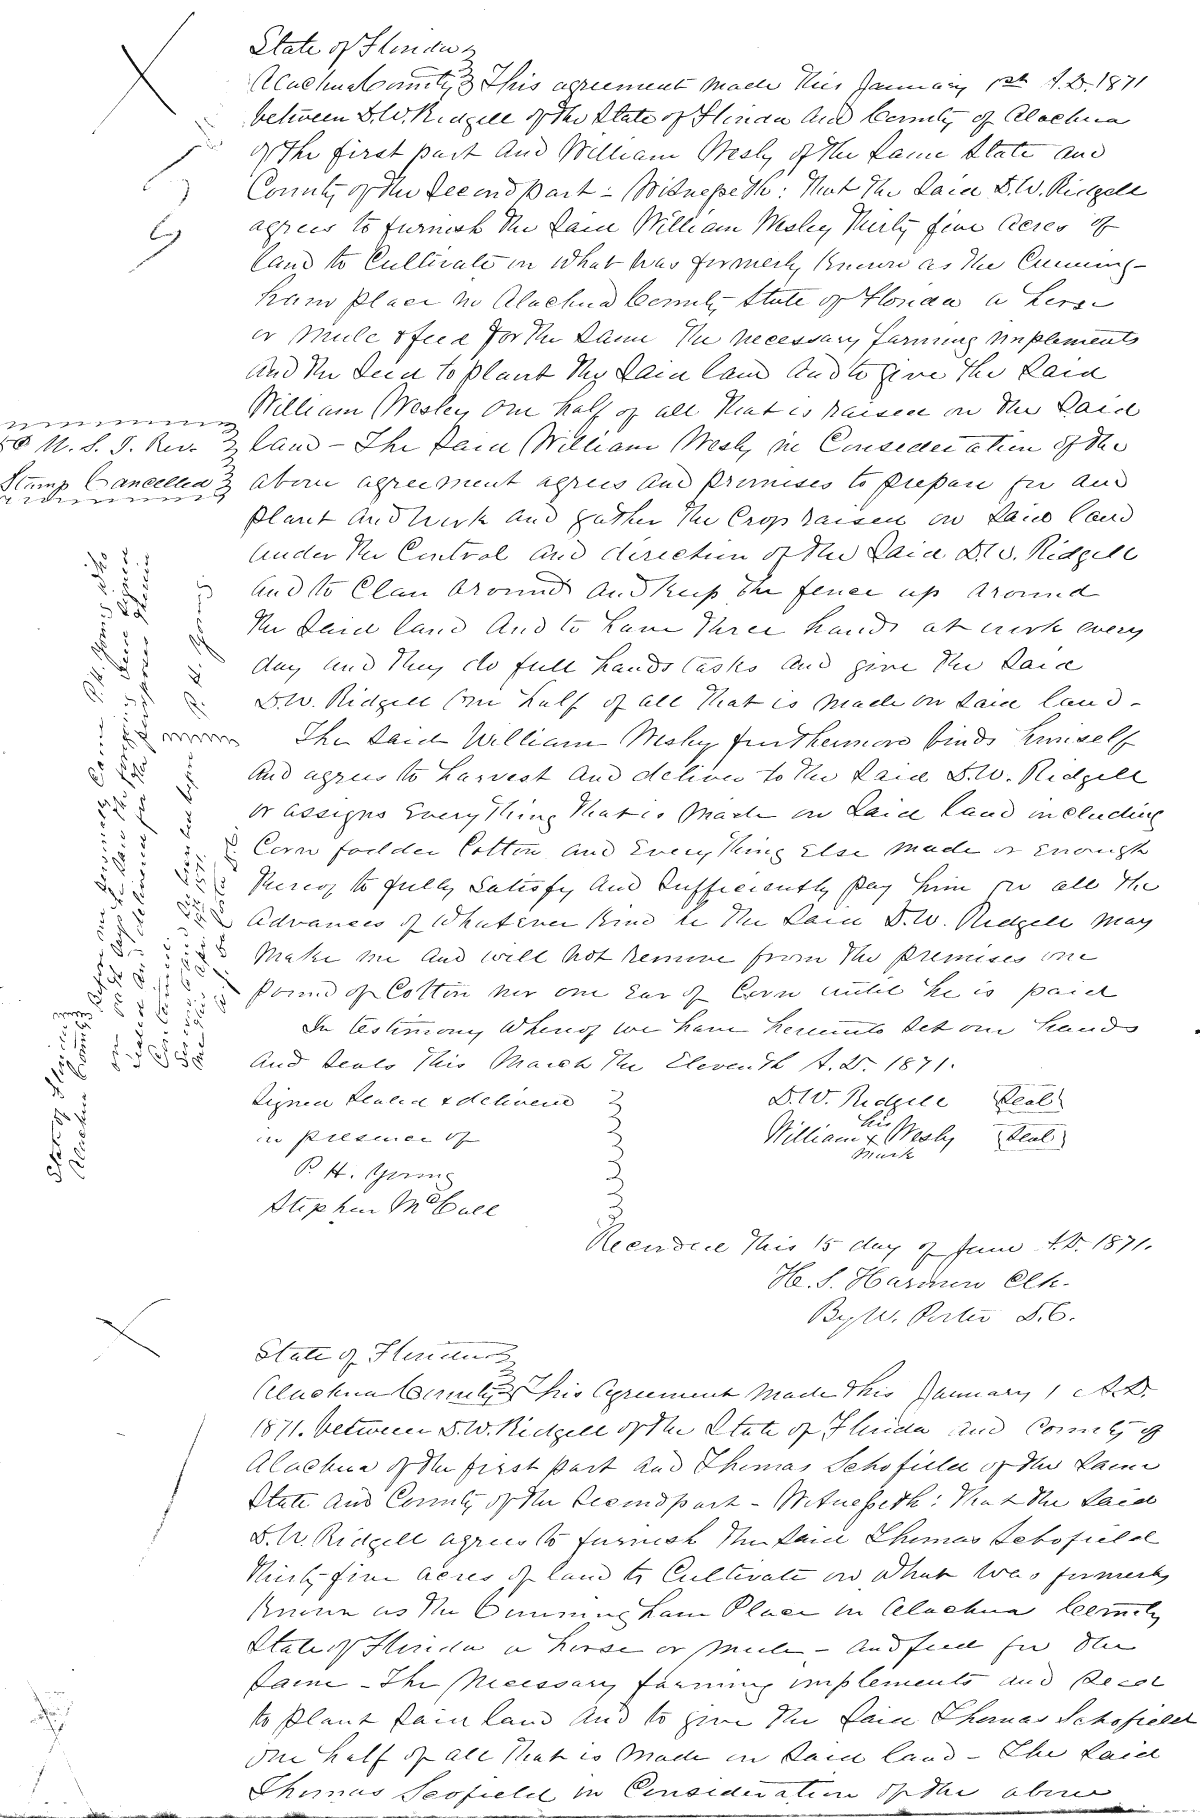 State of Florida
Alachua County This agreement made this January 1st A.D. 1871
between D.W. Ridgell of the State of Florida and County of Alachua
of the first part and William Wesly of the Same State and
County of the Second part: Witnesseth: that the Said D.W. Ridgell
agrees to furnish the Said William Wesley Thirty five acres of
land to Cultivate on what was formerly Known as the Cunning-
ham place in Alachua County State of Florida a horse
or mule & feed for the Same the necessary farming implements
and the Seed to plant the Said land and to give the Said
William Wesley one half of all that is raised on the Said
land - The Said William Wesly in Consideration of the
above agreement agrees and promises to prepare for and
plant and work and gather the Crop raised on Said land
under the Control and direction of the Said D.W. Ridgell
and to Clean around and keep the fence up around
the Said land and to have three hands at work every
day and they do full hands tasks and give the Said
D.W. Ridgell one half of all that is made on Said land -
The Said William Wesley furthermore binds himself
and agrees to harvest and deliver to the Said D.W. Ridgell
or assigns Everything that is made on Said land including
Corn fodder Cotton and Everything Else made or Enough
thereof to fully Satisfy and Sufficiently pay him for all the
advances of whatever Kind he the Said D.W. Ridgell may
make me and will not remove from the premises one
pound of Cotton nor one Ear of Corn until he is paid
In testimony whereof we have hereunto Set our hands
and Seals this March the Eleventh A.D. 1871.
Signed Sealed & delivered
in presence of
P. H. Young
Stephen McCall
D.W. Ridgell Seal
his
William x Wesly Seal
mark
50 U.S.I. Rev.
Stamp Cancelled
State of Florida
Alachua County
Before me personally Come P.H. Young who
on oath Says he Saw the forgoing deed Signed
Sealed and delivered for the purposes therein
Contained.
P. H. Young
Sworn to and Subscribed before
me this Apr 19th 1871.
Recorded this 15 day of June A.D. 1871.
H. S. Harmon Clk.
By W. Porter D.C.
State of Florida
Alachua County This Agreement made this January 1 A.D.
1871. between D.W. Ridgell of the State of Florida and County of
Alachua of the first part and Thomas Schofield of the Same
State and County of the Second part - Witnesseth: that the Said
D.W. Ridgell agrees to furnish the Said Thomas Schofield
thirty-five acres of land to Cultivate on what was formerly
Known as the Cunningham Place in Alachua County
State of Florida a horse or mule - and feed for the
Same - The Necessary farming implements and Seed
to plant Said land and to give the Said Thomas Schofield
one half of all that is made on Said land - The Said
Thomas Scofield in Consideration of the above